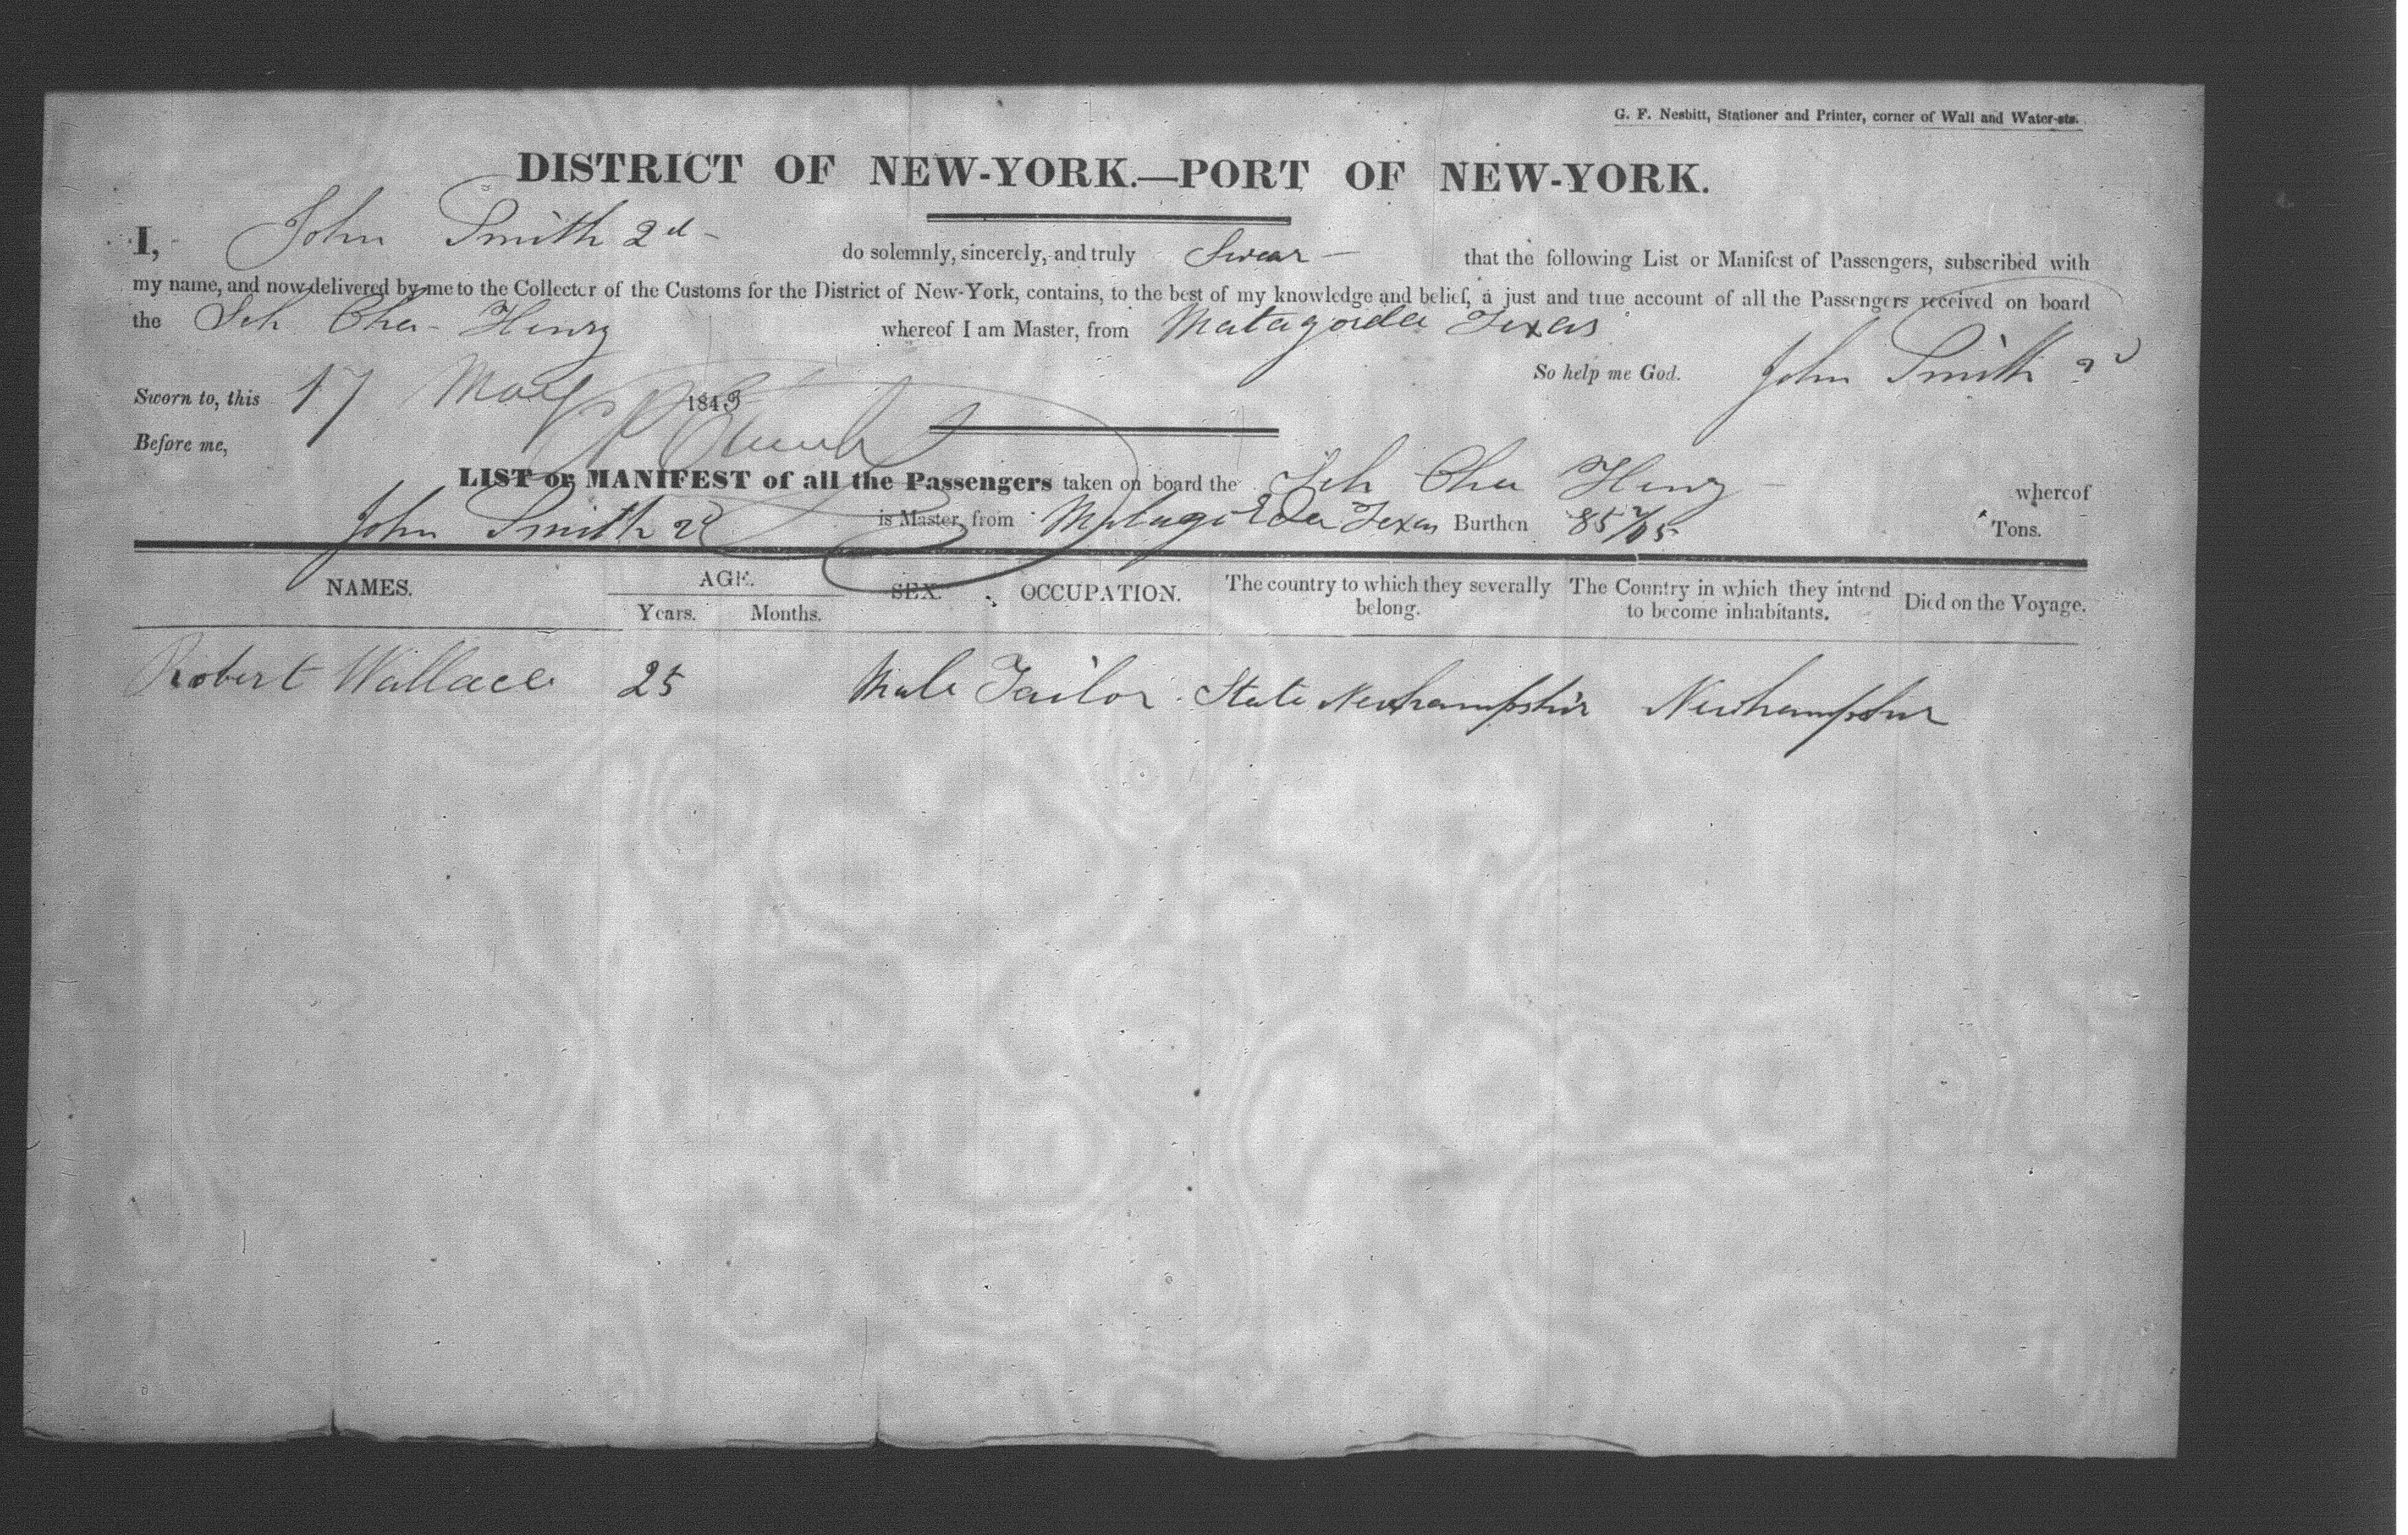 G. F. Nesbitt, Stationer and Printer, corner of Wall and Water-sts.
DISTRICT OF NEW-YORK.—PORT OF NEW-YORK.
I, John Smith 2d - do solemnly, sincerely, and truly Swear - that the following List or Manifest of Passengers, subscribed with
my name, and now delivered by me to the Collector of the Customs for the District of New-York, contains, to the best of my knowledge and belief, a just and true account of all the Passengers received on board
the Sch Cha- Henry whereof I am Master, from Matagorda Texas
So help me God. John Smith 2d
Sworn to, this 17 May 1843
Before me,
LIST or MANIFEST of all the Passengers taken on board the Sch Cha Henry - whereof
John Smith 2d is Master, from Matagorda Texas Burthen 85 Tons.
NAMES. AGE. SEX. OCCUPATION. The country to which they severally belong. The Country in which they intend to become inhabitants. Died on the Voyage.
Years. Months.
Robert Wallace 25 Male Tailor State Newhampshir Newhampshir